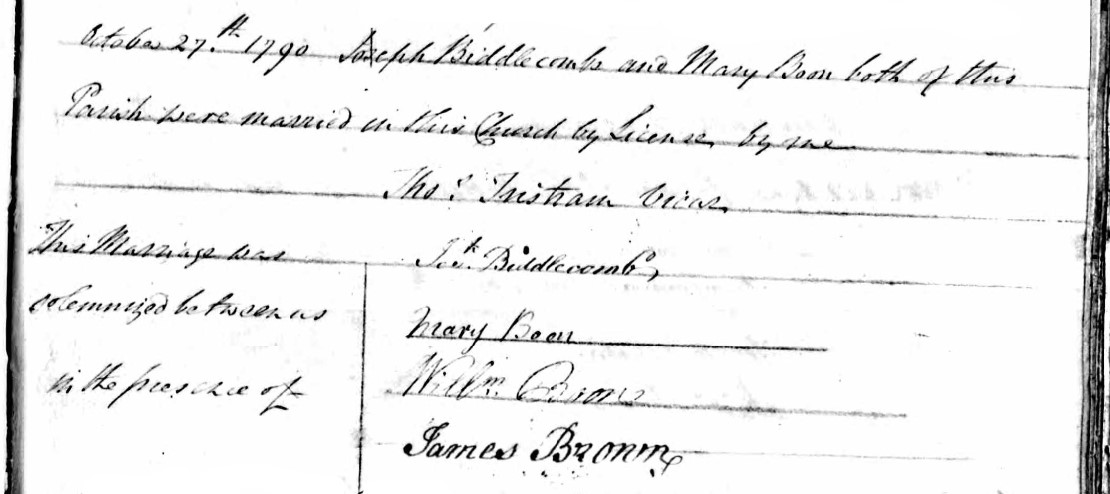 October 27.th 1790 Joseph Biddlecombe and Mary Boon both of this
Parish were married in this Church by License, by me
Thos. Tristram Vicar
This Marriage was
solemnized between us
in the presence of
Josh. Biddlecombe
Mary Boon
Willm.
James Brown